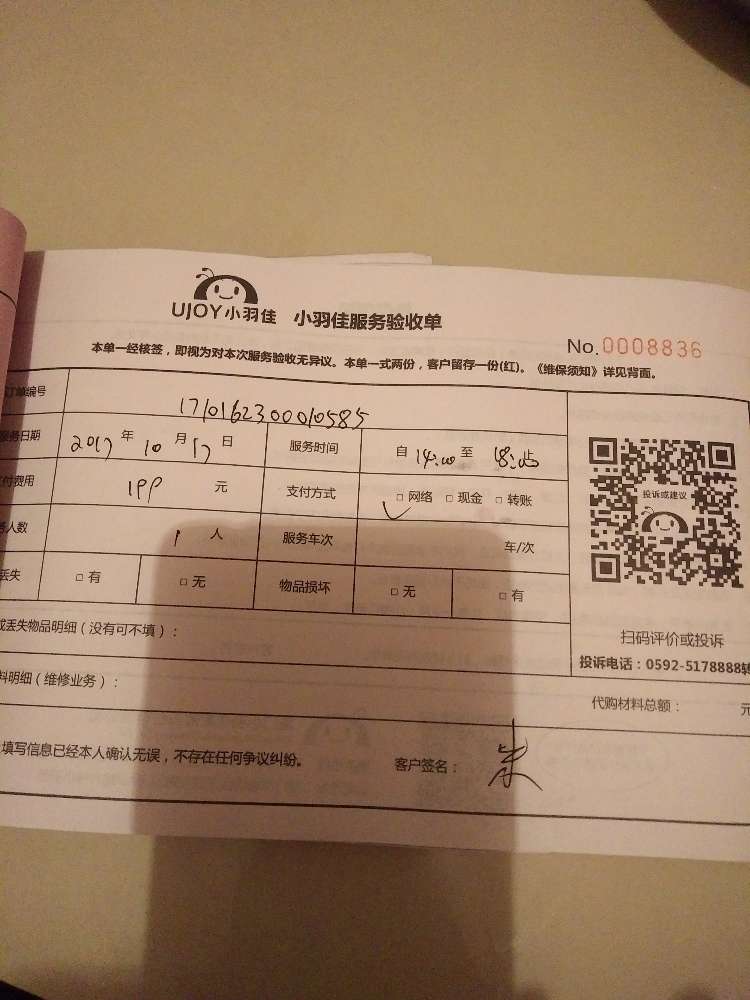 UJOY小羽佳 小羽佳服务验收单
No.0008836
本单一经核签，即视为对本次服务验收无异议。本单一式两份，客户留存一份(红)。《维保须知》详见背面。
订单编号 1710162300010585
服务日期 2017年10月17日 服务时间 自14:00至18:00止
支付费用 199元 支付方式 □网络 □现金 □转账
务人数 1人 服务车次 车/次
丢失 □有 □无 物品损坏 □无 □有
投诉或建议
扫码评价或投诉
投诉电话：0592-5178888转
或丢失物品明细（没有可不填）：
料明细（维修业务）： 代购材料总额： 元
填写信息已经本人确认无误，不存在任何争议纠纷。 客户签名：朱